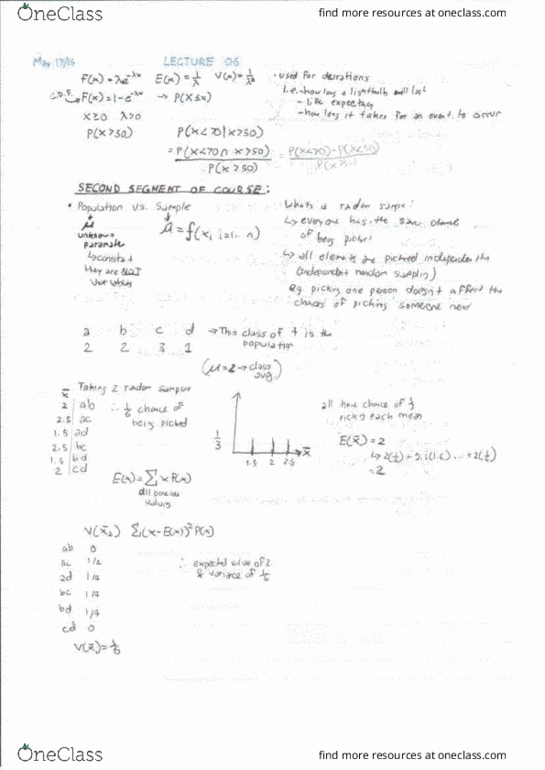 OneClass
find more resources at oneclass.com
May 17/16
LECTURE 06
F(x) = λe^-λx E(x) = 1/λ V(x) = 1/λ² • used for durations
C.D.F. → F(x) = 1 - e^-λx → P(X≤x)
i.e. - how long a lightbulb will last
- life expectancy
- how long it takes for an event to occur
X≥0 λ>0
P(x>50) P(x<70 | x>50)
= P(x<70 ∩ x>50) / P(x>50) = P(x<70) - P(x<50) / P(x>50)
SECOND SEGMENT OF COURSE:
• Population vs. Sample
μ
unknown
parameter
↳ constant
they are NOT
variables
= f(x, i=1... n)
Whats a random sample?
↳ everyone has the same chance
of being picked
↳ all elements are picked independently
(independent random sampling)
eg. picking one person doesn't affect the
chances of picking someone new
a b c d → This class of 4 is the
population
2 2 3 1
(μ=2 → class
avg)
x̄ Taking 2 random sample
2 ab ∴ 1/6 chance of
being picked
2.5 ac
1.5 ad
2.5 bc
1.5 bd
2 cd
1/3
1.5 2 2.5 x̄
all have chance of 1/3
picking each mean
E(x̄) = 2
= 2
E(x) = Σ x P(x)
all possible
values
V(x̄₂) Σ(x-E(x))² P(x)
ab 0
ac 1/4
ad 1/4
bc 1/4
bd 1/4
cd 0
∴ expected value of 2
& variance of 1/6
V(x̄) = 1/6
OneClass
find more resources at oneclass.com